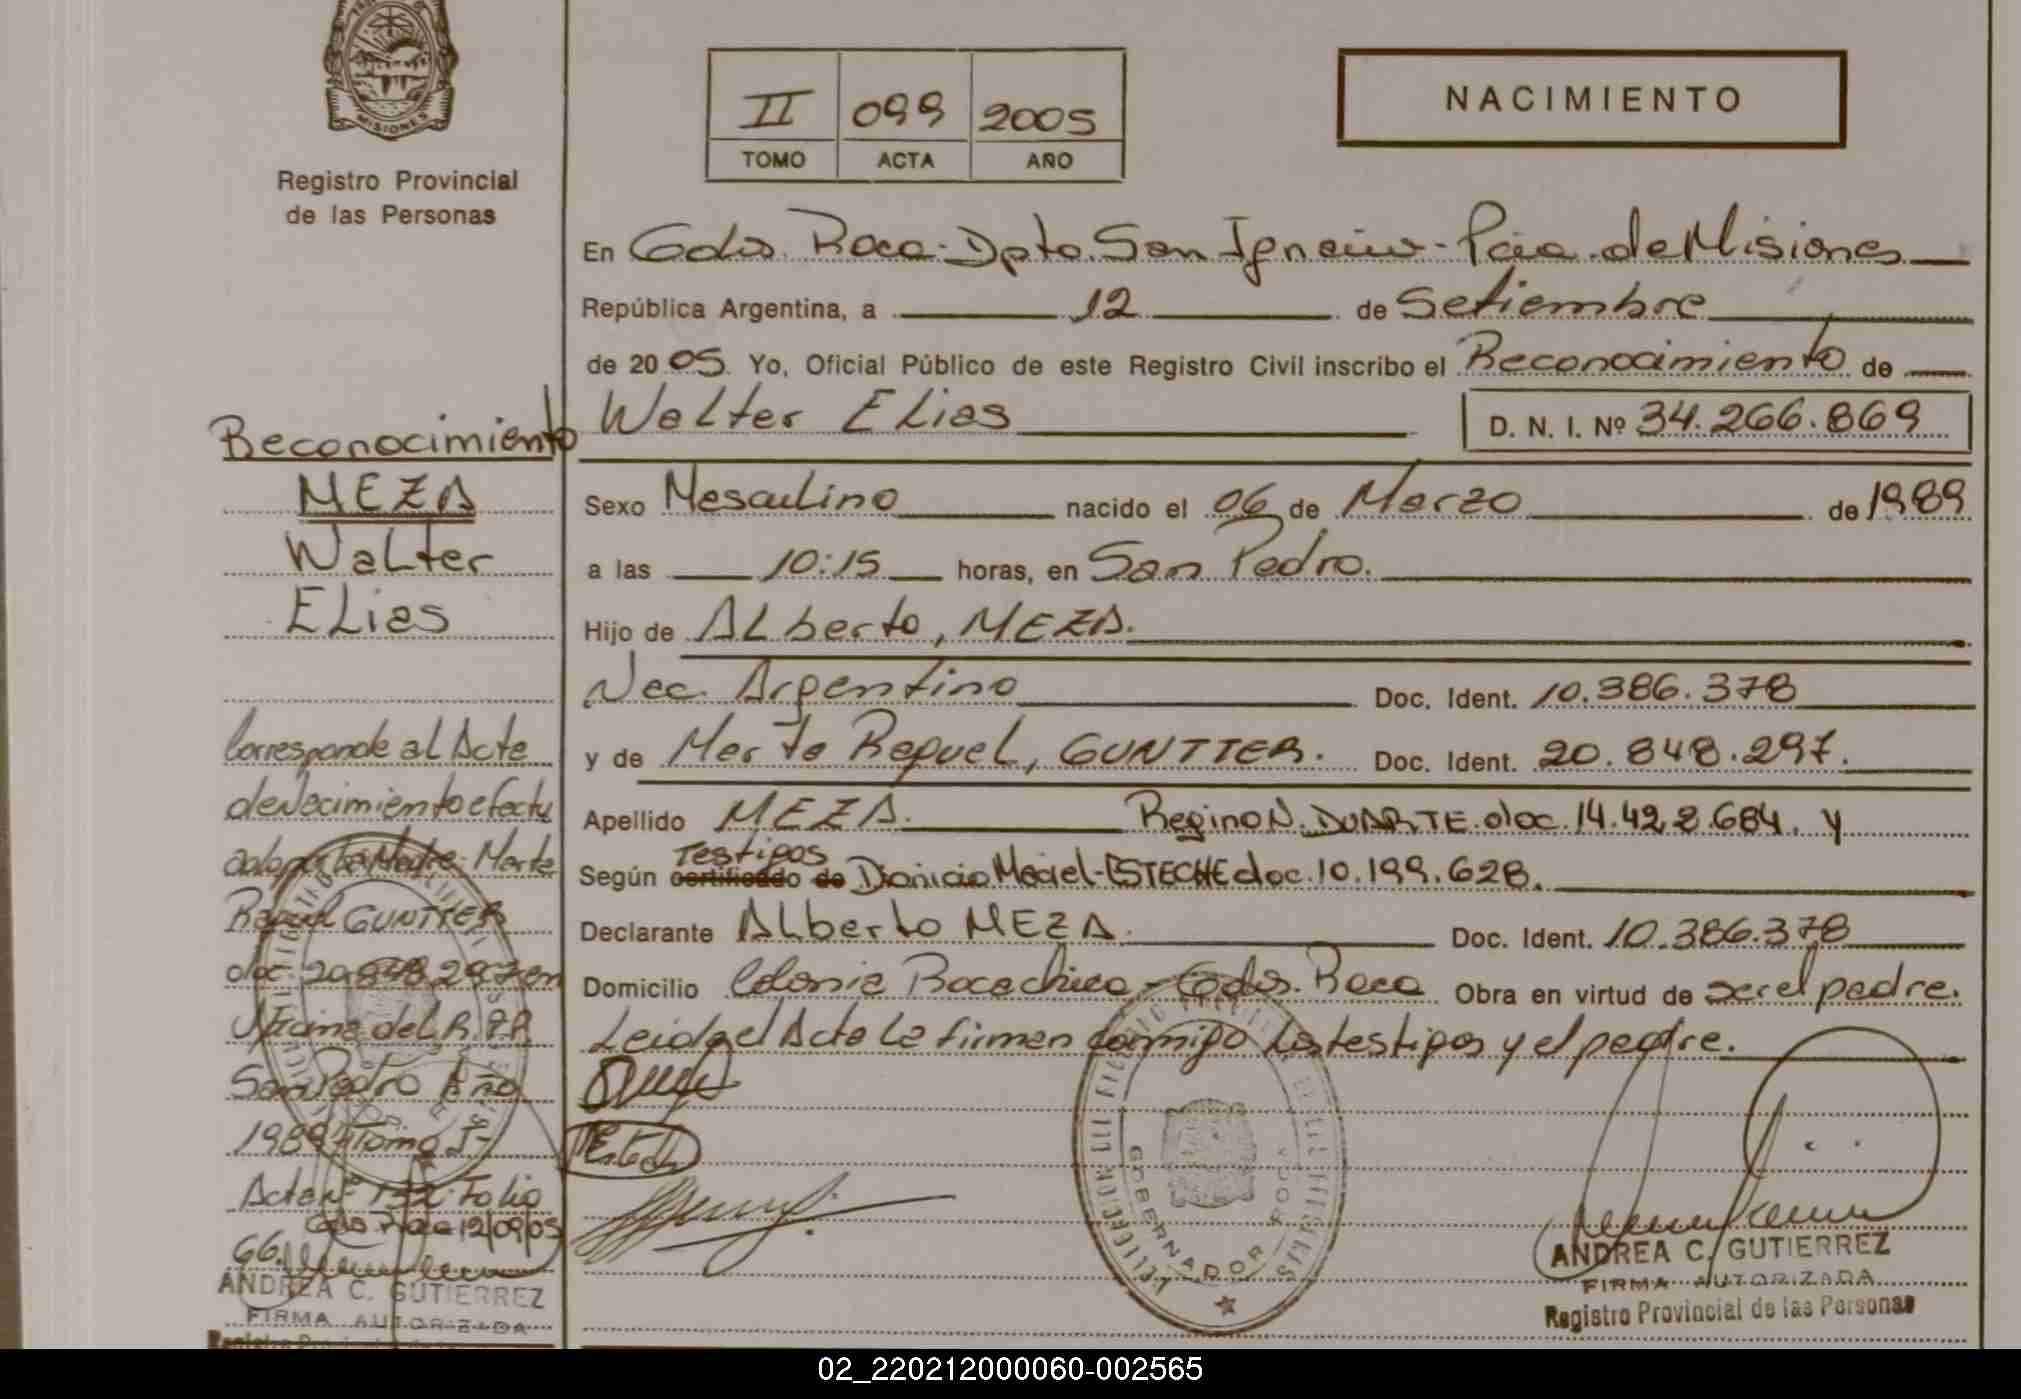 MISIONES
Registro Provincial
de las Personas
II 099 2005
TOMO ACTA AÑO
NACIMIENTO
En Gdor. Roca-Dpto. San Ignacio-Pcia. de Misiones
República Argentina, a 12 de Setiembre
de 2005. Yo, Oficial Público de este Registro Civil inscribo el Reconocimiento de
Walter Elias D. N. I. Nº 34.266.869
Sexo Masculino nacido el 06 de Marzo de 1989
a las 10:15 horas, en San Pedro.
Hijo de Alberto, MEZA.
Nac. Argentino Doc. Ident. 10.386.378
y de Marta Raquel, GUNTTER. Doc. Ident. 20.848.297.
Apellido MEZA. Regino N. DUARTE doc. 14.422.684. y
Testigos
Según certificado de Dionicio Maciel-ESTECHE doc. 10.199.628.
Declarante Alberto MEZA. Doc. Ident. 10.386.378
Domicilio Colonia Bocachica-Gdor. Roca Obra en virtud de ser el padre.
Leida el Acta la firman conmigo los testigos y el padre.
GOBERNADOR ROCA
ANDREA C. GUTIERREZ
FIRMA AUTORIZADA
Registro Provincial de las Personas
Reconocimiento
MEZA
Walter
Elias
Corresponde al Acta
de Nacimiento efectu
ada por la Madre: Marta
Raquel GUNTTER
doc. 20.848.297 en
Oficina del R.P.P.
San Pedro Año
1989 Tomo I-
Acta Nº 132 Folio
Gdor. Roca 12/09/05
66.
ANDREA C. GUTIERREZ
FIRMA AUTORIZADA
02_220212000060-002565